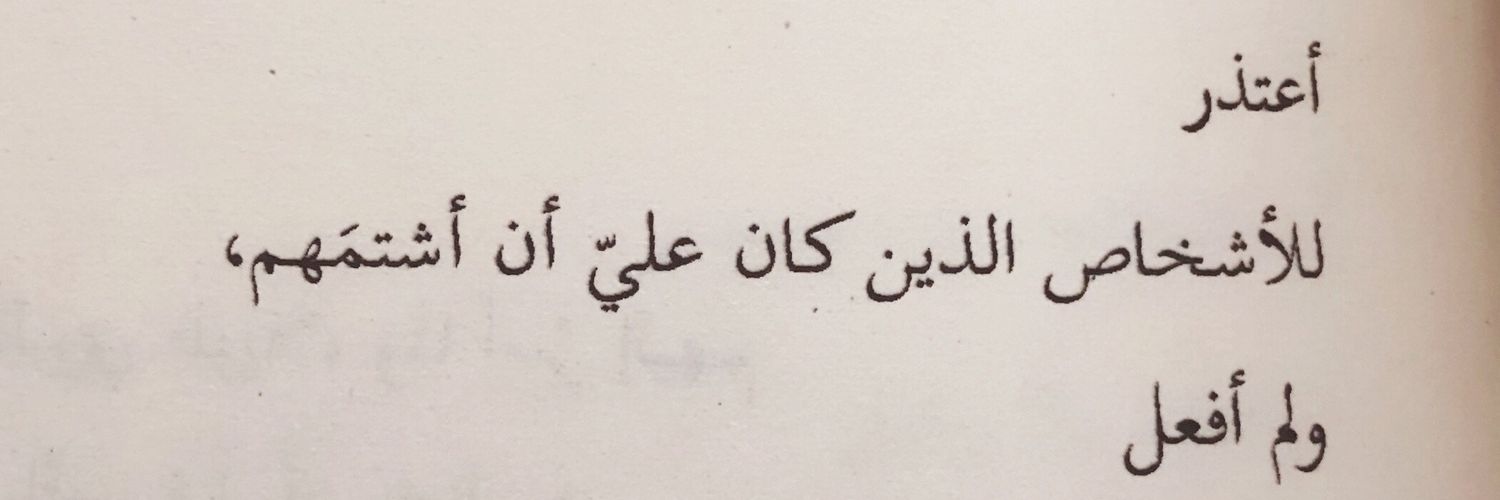 أعتذر
للأشخاص الذين كان عليّ أن أشتمَهم،
ولم أفعل